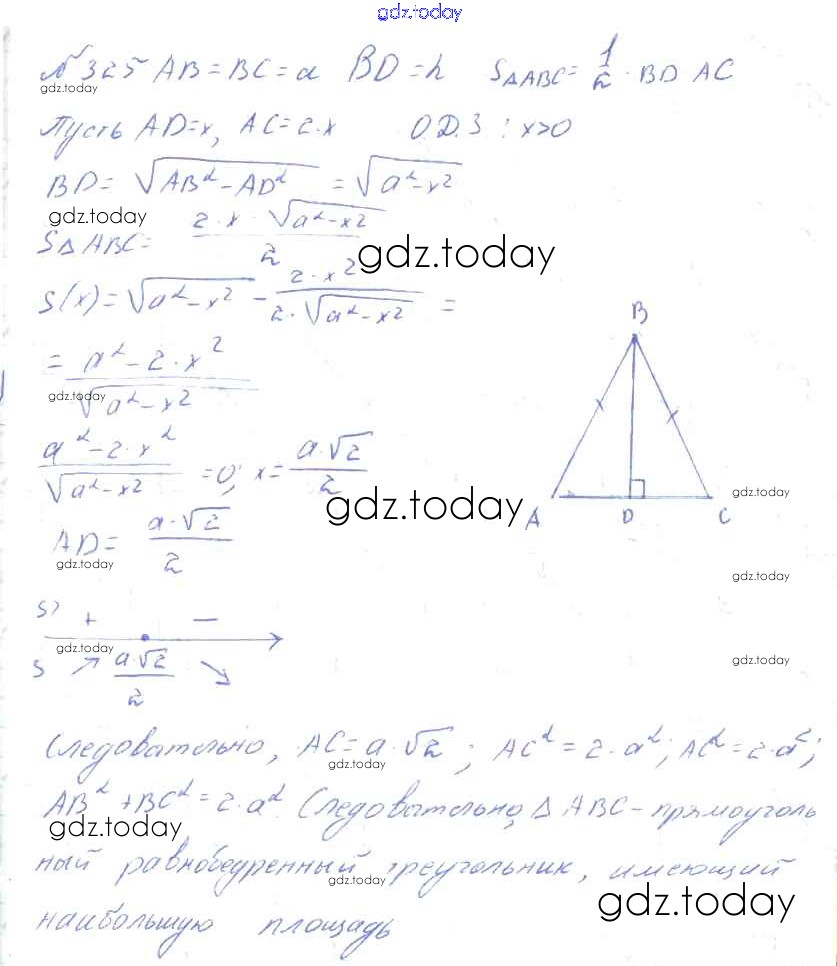 gdz.today
№ 325 AB = BC = a BD = h S△ABC = 1/2 · BD AC
gdz.today
Пусть AD = x, AC = 2·x О.Д.З : x>0
BD = √(AB² - AD²) = √(a² - x²)
gdz.today
S△ABC = (2·x·√(a² - x²))/2
gdz.today
S(x) = √(a² - x²) - (2·x²)/(2·√(a² - x²)) =
= (a² - 2·x²)/√(a² - x²)
gdz.today
B
(a² - 2·x²)/√(a² - x²) = 0; x = (a·√2)/2
gdz.today
gdz.today
A D C
AD = (a·√2)/2
gdz.today
gdz.today
S' + -
gdz.today
S ↗ (a·√2)/2 ↘
gdz.today
Следовательно, AC = a·√2; AC² = 2·a²; AC² = 2·a²;
gdz.today
AB² + BC² = 2·a². Следовательно, △ ABC - прямоуголь
gdz.today
ный равнобедренный треугольник, имеющий
gdz.today
gdz.today
наибольшую площадь